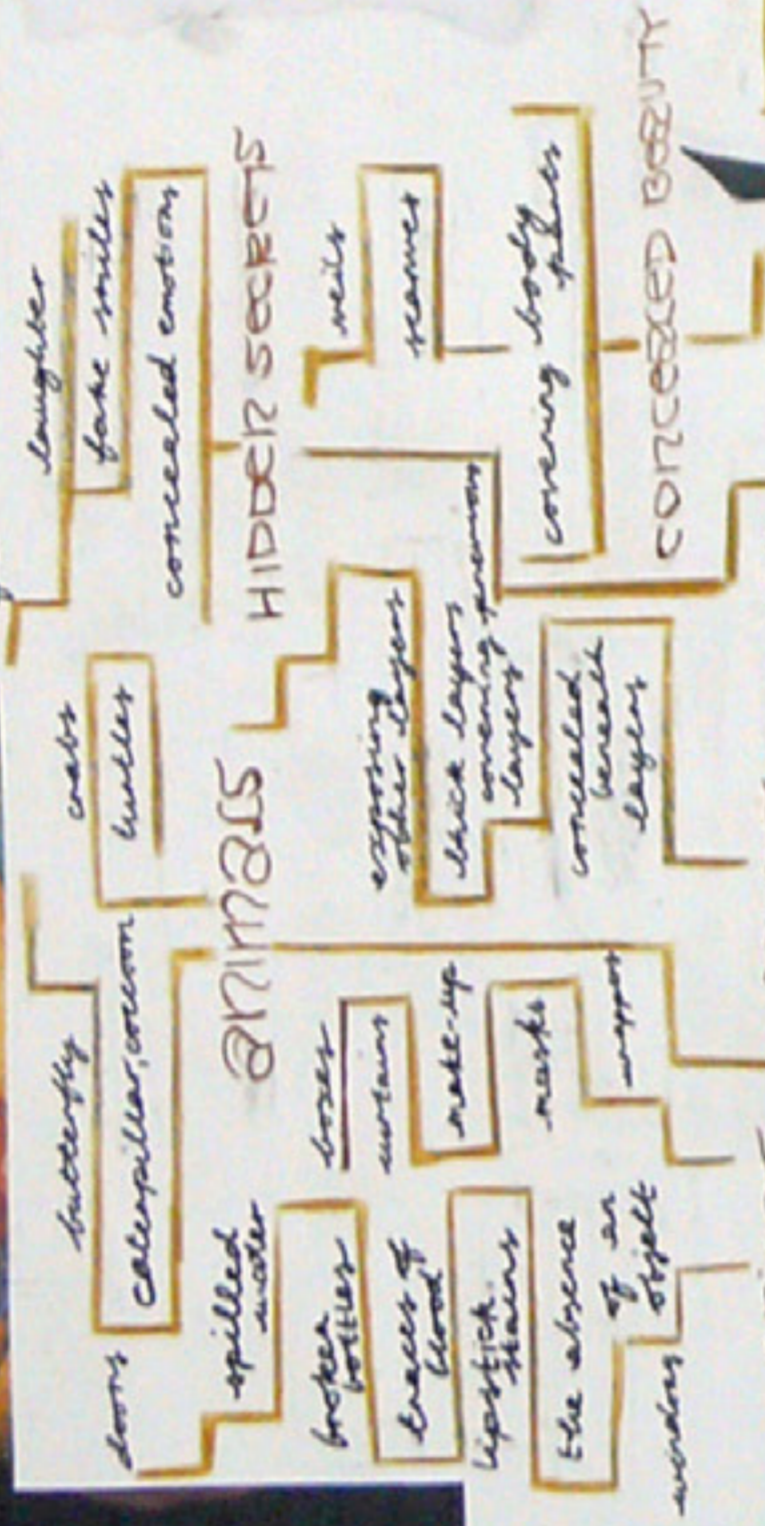 doors
butterfly
caterpillar, coccoon
crabs
turtles
laughter
fake smiles
concealed emotions
animals
HIDDEN SECRETS
spilled
water
broken
bottles
traces of
blood
lipstick
stains
the absence
of an
object
windows
boxes
curtains
make-up
masks
wrappers
exposing
other layers
brick layers
covering previous
layers
concealed
beneath
layers
veils
scarves
covering body
parts
CONCEALED BEAUTY